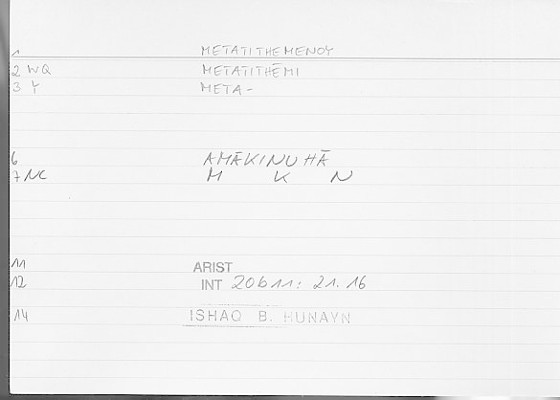 1 METATITHEMENOY
2 WQ METATITHĒMI
3 Y META-
6 AMĀKINUHĀ
7 NC M K N
11 ARIST
12 INT 20b11: 21.16
14 ISHAQ B. HUNAYN